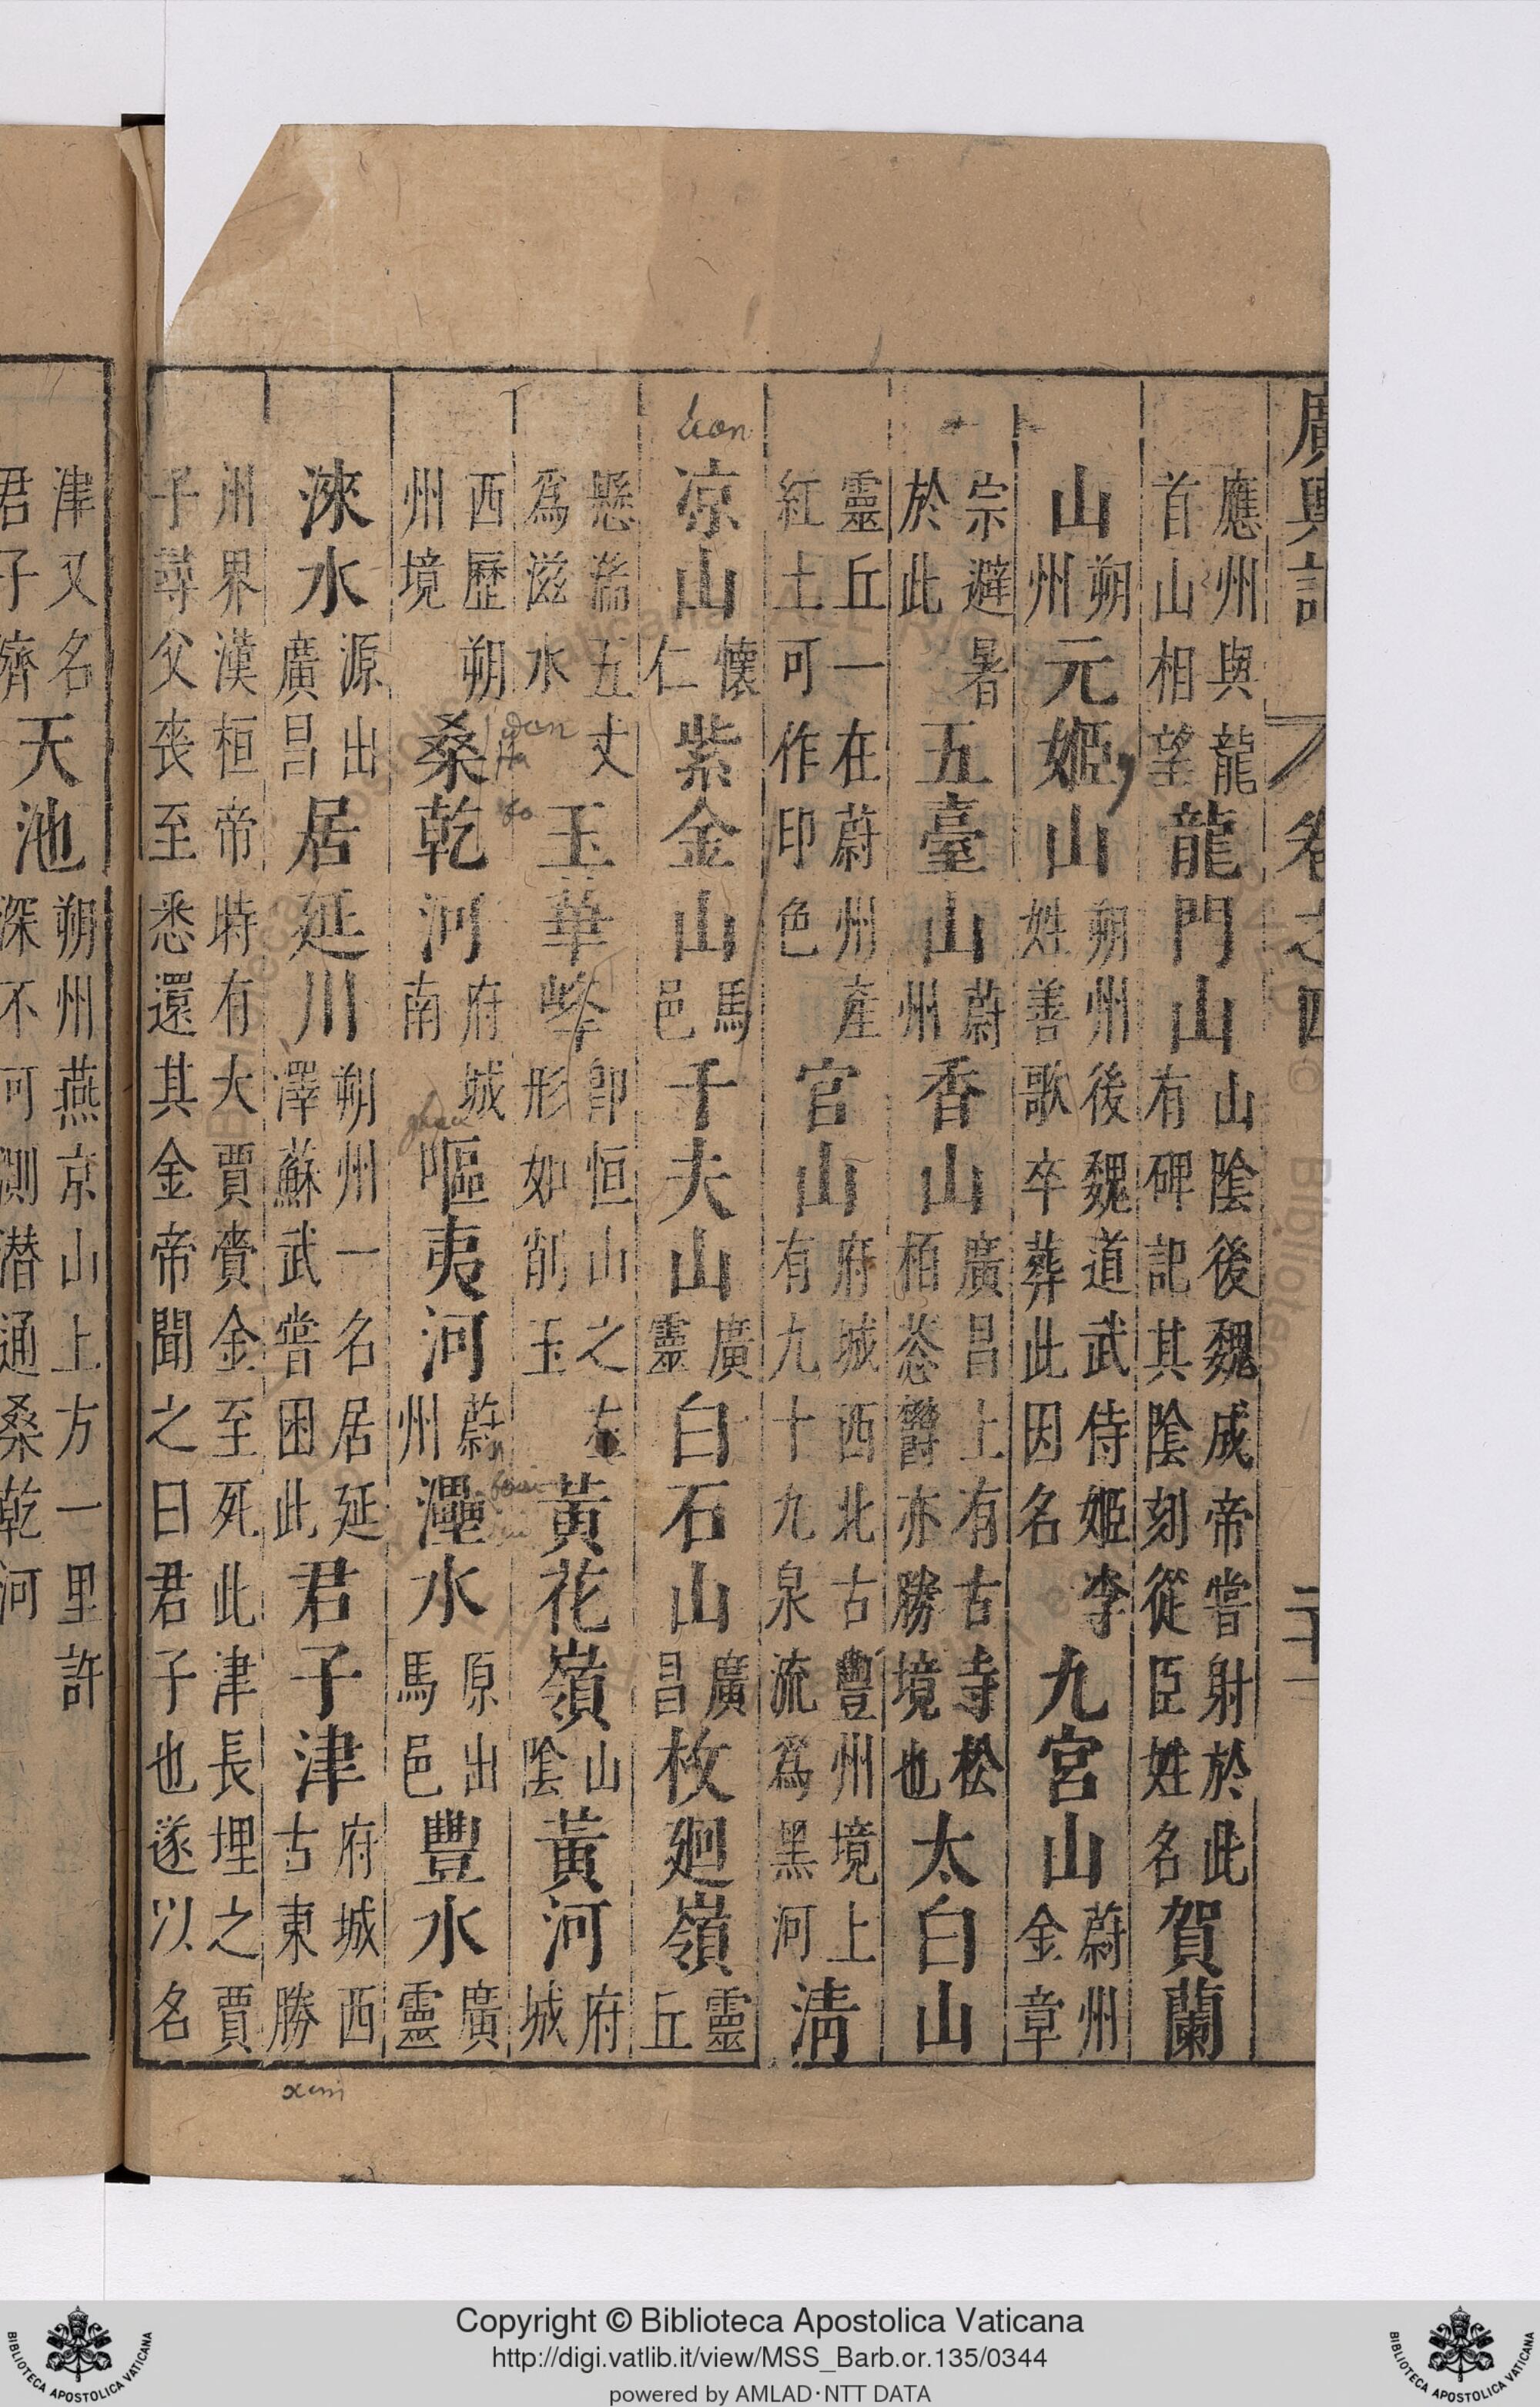 廣輿記 卷之四 二十一
應州與龍首山相望龍門山山陰後魏成帝嘗射於此有碑記其陰刻從臣姓名賀蘭
山朔州元姬山朔州後魏道武侍姬李姓善歌卒葬此因名九宮山蔚州金章
宗避暑於此五臺山蔚州香山廣昌上有古寺松栢蓊鬱亦勝境也太白山
靈丘一在蔚州產紅土可作印色官山府城西北古豐州境上有九十九泉流爲黑河淸
凉山懷仁紫金山馬邑千夫山廣靈白石山廣昌枚廻嶺靈丘
懸湍五丈爲滋水玉華峰卽恒山之左形如削玉黃花嶺山陰黃河府城
西歷朔州境桑乾河府城南嘔夷河蔚州灅水原出馬邑豐水廣靈
淶水源出廣昌居延川朔州一名居延澤蘇武嘗困此君子津府城西古東勝
州界漢桓帝時有大賈賫金至死此津長埋之賈子尋父喪至悉還其金帝聞之曰君子也遂以名
津又名君子濟天池朔州燕京山上方一里許深不可測潜通桑乾河
Copyright © Biblioteca Apostolica Vaticana
http://digi.vatlib.it/view/MSS_Barb.or.135/0344
powered by AMLAD·NTT DATA
BIBLIOTECA APOSTOLICA VATICANA
BIBLIOTECA APOSTOLICA VATICANA